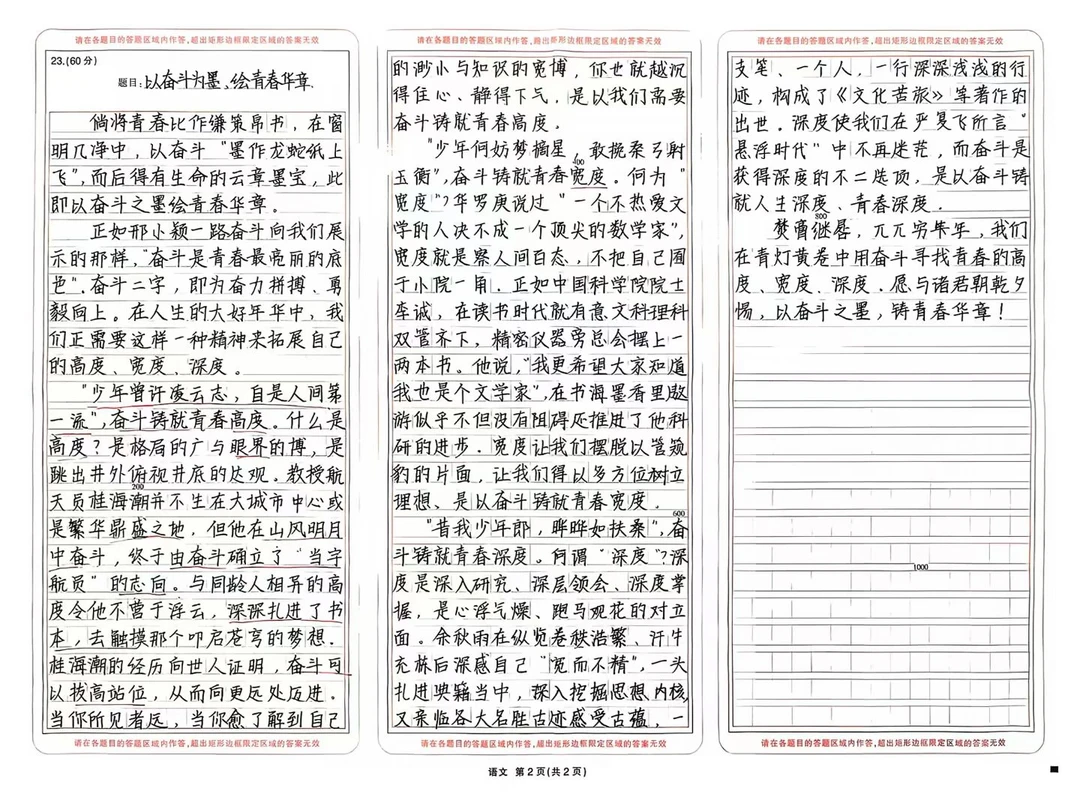 请在各题目的答题区域内作答,超出矩形边框限定区域的答案无效
23.(60分)
题目:以奋斗为墨、绘青春华章.
倘将青春比作缣策帛书，在窗
明几净中，以奋斗“墨作龙蛇纸上
飞”,而后得有生命的云章墨宝，此
即以奋斗之墨绘青春华章。
正如邢小颖一路奋斗向我们展
示的那样,“奋斗是青春最亮丽的底
色”。奋斗二字，即为奋力拼搏、勇
毅向上。在人生的大好年华中，我
们正需要这样一种精神来拓展自己
的高度、宽度、深度。
“少年曾许凌云志，自是人间第
一流”,奋斗铸就青春高度。什么是
高度？是格局的广与眼界的博，是
跳出井外俯视井底的达观。教授航
天员桂海潮并不生在大城市中心或
200
是繁华鼎盛之地，但他在山风明月
中奋斗，终于由奋斗确立了“当宇
航员”的志向。与同龄人相异的高
度令他不营于浮云，深深扎进了书
本，去触摸那个叩启苍穹的梦想.
桂海潮的经历向世人证明，奋斗可
以拔高站位，从而向更远处迈进.
当你所见者远，当你愈了解到自己
请在各题目的答题区域内作答,超出矩形边框限定区域的答案无效
请在各题目的答题区域内作答,超出矩形边框限定区域的答案无效
的渺小与知识的宽博，你也就越沉
得住心、静得下气，是以我们需要
奋斗铸就青春高度。
“少年何妨梦摘星，敢挽桑弓射
400
玉衡”,奋斗铸就青春宽度。何为“
宽度”?华罗庚说过“一个不热爱文
学的人决不成一个顶尖的数学家”,
宽度就是察人间百态，不把自己囿
于小院一角。正如中国科学院院士
在读书时代就有意文科理科
双管齐下，精密仪器旁总会摆上一
两本书。他说,“我更希望大家知道
我也是个文学家”,在书海墨香里遨
游似乎不但没有阻碍还推进了他科
研的进步.宽度让我们摆脱以管窥
豹的片面，让我们得以多方位树立
理想、是以奋斗铸就青春宽度.
600
“昔我少年郎，晔晔如扶桑”,奋
斗铸就青春深度。何谓“深度”?深
度是深入研究、深层领会、深度掌
握，是心浮气燥、跑马观花的对立
面。余秋雨在纵览卷帙浩繁、汗牛
充栋后深感自己“宽而不精”,一头
扎进典籍当中，深入挖掘思想内核
又亲临各大名胜古迹感受古蕴，一
请在各题目的答题区域内作答,超出矩形边框限定区域的答案无效
请在各题目的答题区域内作答,超出矩形边框限定区域的答案无效
支笔、一个人，一行深深浅浅的行
迹，构成了《文化苦旅》等著作的
出世。深度使我们在严复飞所言“
悬浮时代”中不再迷茫，而奋斗是
获得深度的不二选项，是以奋斗铸
就人生深度、青春深度.
800
焚膏继晷，兀兀穷年，我们
在青灯黄卷中用奋斗寻找青春的高
度、宽度、深度、愿与诸君朝乾夕
惕，以奋斗之墨，铸青春华章！
1000
请在各题目的答题区域内作答,超出矩形边框限定区域的答案无效
语文 第2页(共2页)